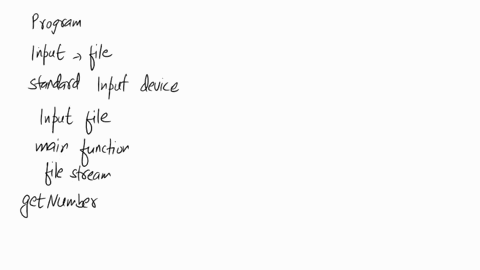 Program
Input → file
standard Input device
Input file
main function
file stream
getNumber